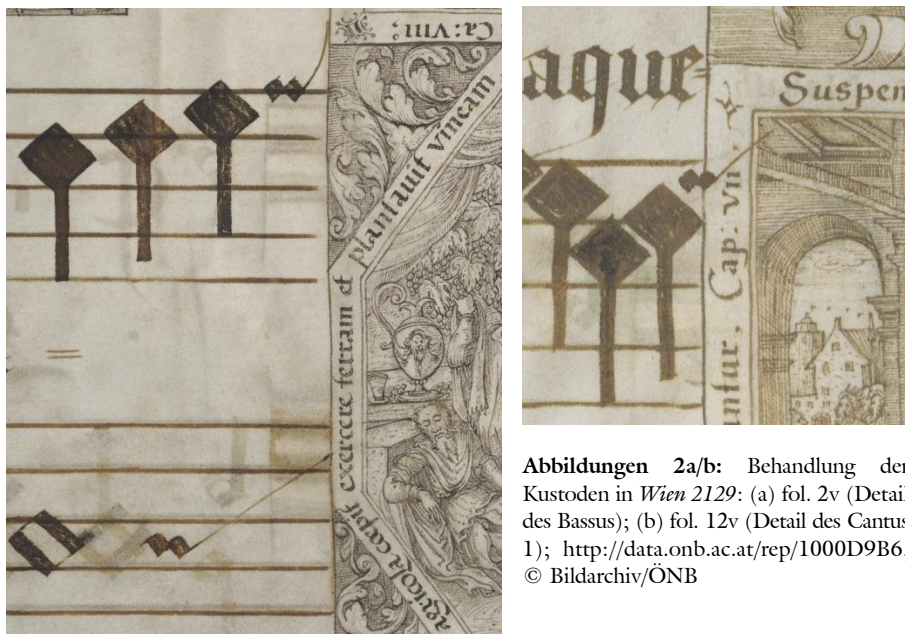 Ca: VIII;
Agricola
exercere terram et
plantauit vineam
aque
Suspen
untur, Cap: VII,
Abbildungen 2a/b: Behandlung der
Kustoden in Wien 2129: (a) fol. 2v (Detail
des Bassus); (b) fol. 12v (Detail des Cantus
1); http://data.onb.ac.at/rep/1000D9B6,
© Bildarchiv/ÖNB